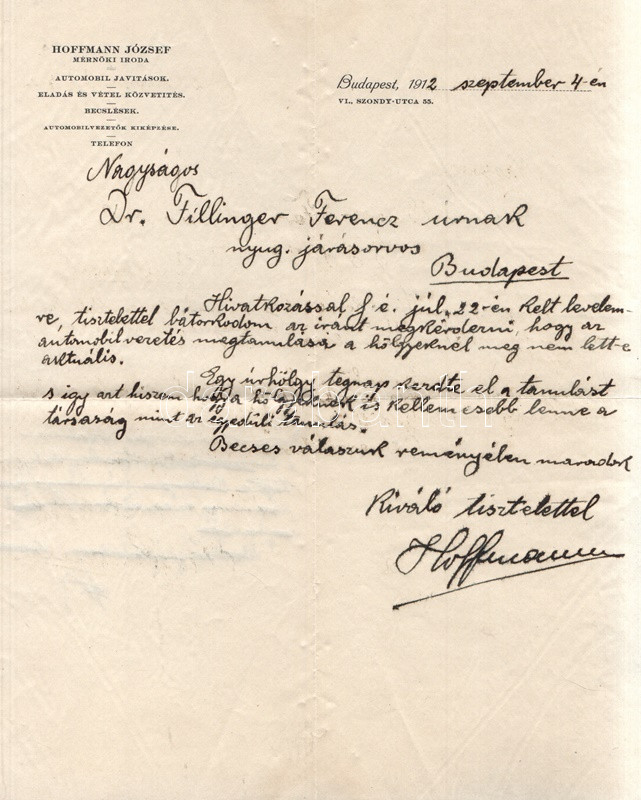 HOFFMANN JÓZSEF
MÉRNÖKI IRODA
AUTOMOBIL JAVITÁSOK.
ELADÁS ÉS VÉTEL KÖZVETITÉS.
BECSLÉSEK.
AUTOMOBILVEZETŐK KIKÉPZÉSE.
TELEFON
Budapest, 1912 szeptember 4-én
VI., SZONDY-UTCA 55.
Nagyságos
Dr. Fillinger Ferencz úrnak
nyug. járásorvos
Budapest
Hivatkozással f. é. júl. 22-én kelt levelem-
re, tisztelettel bátorkodom az iránt megkérdezni, hogy az
automobilvezetés megtanulása a hölgyeknél még nem lett-e
aktuális.
Egy úrhölgy tegnap kezdte el a tanulást
s igy azt hiszem hogy a hölgyeknek is kellemesebb lenne a
társaság mint az egyedüli tanulás.
Becses válaszuk reményében maradok
Kiváló tisztelettel
Hoffmann
darabanth